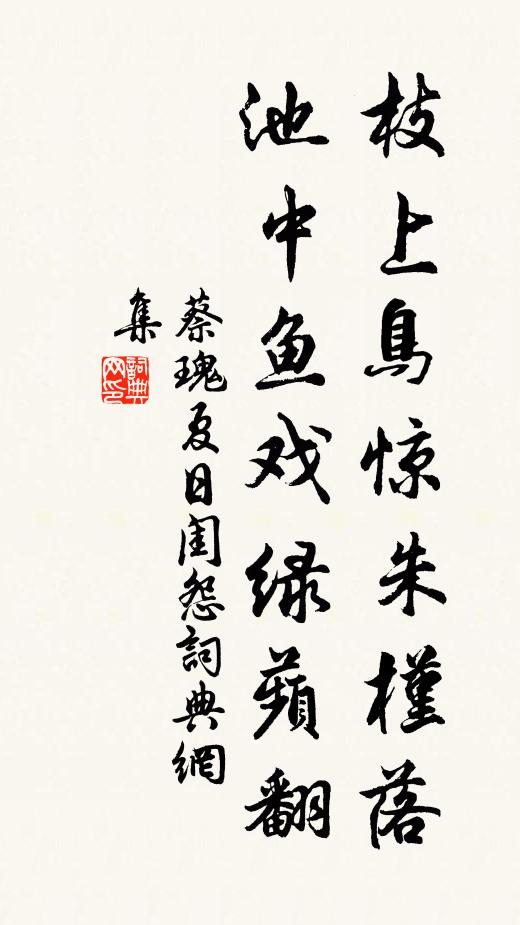 枝上鳥惊朱槿落
池中鱼戏绿蘋翻
蔡瑰夏日闺怨詞典網
集
詞典
网印